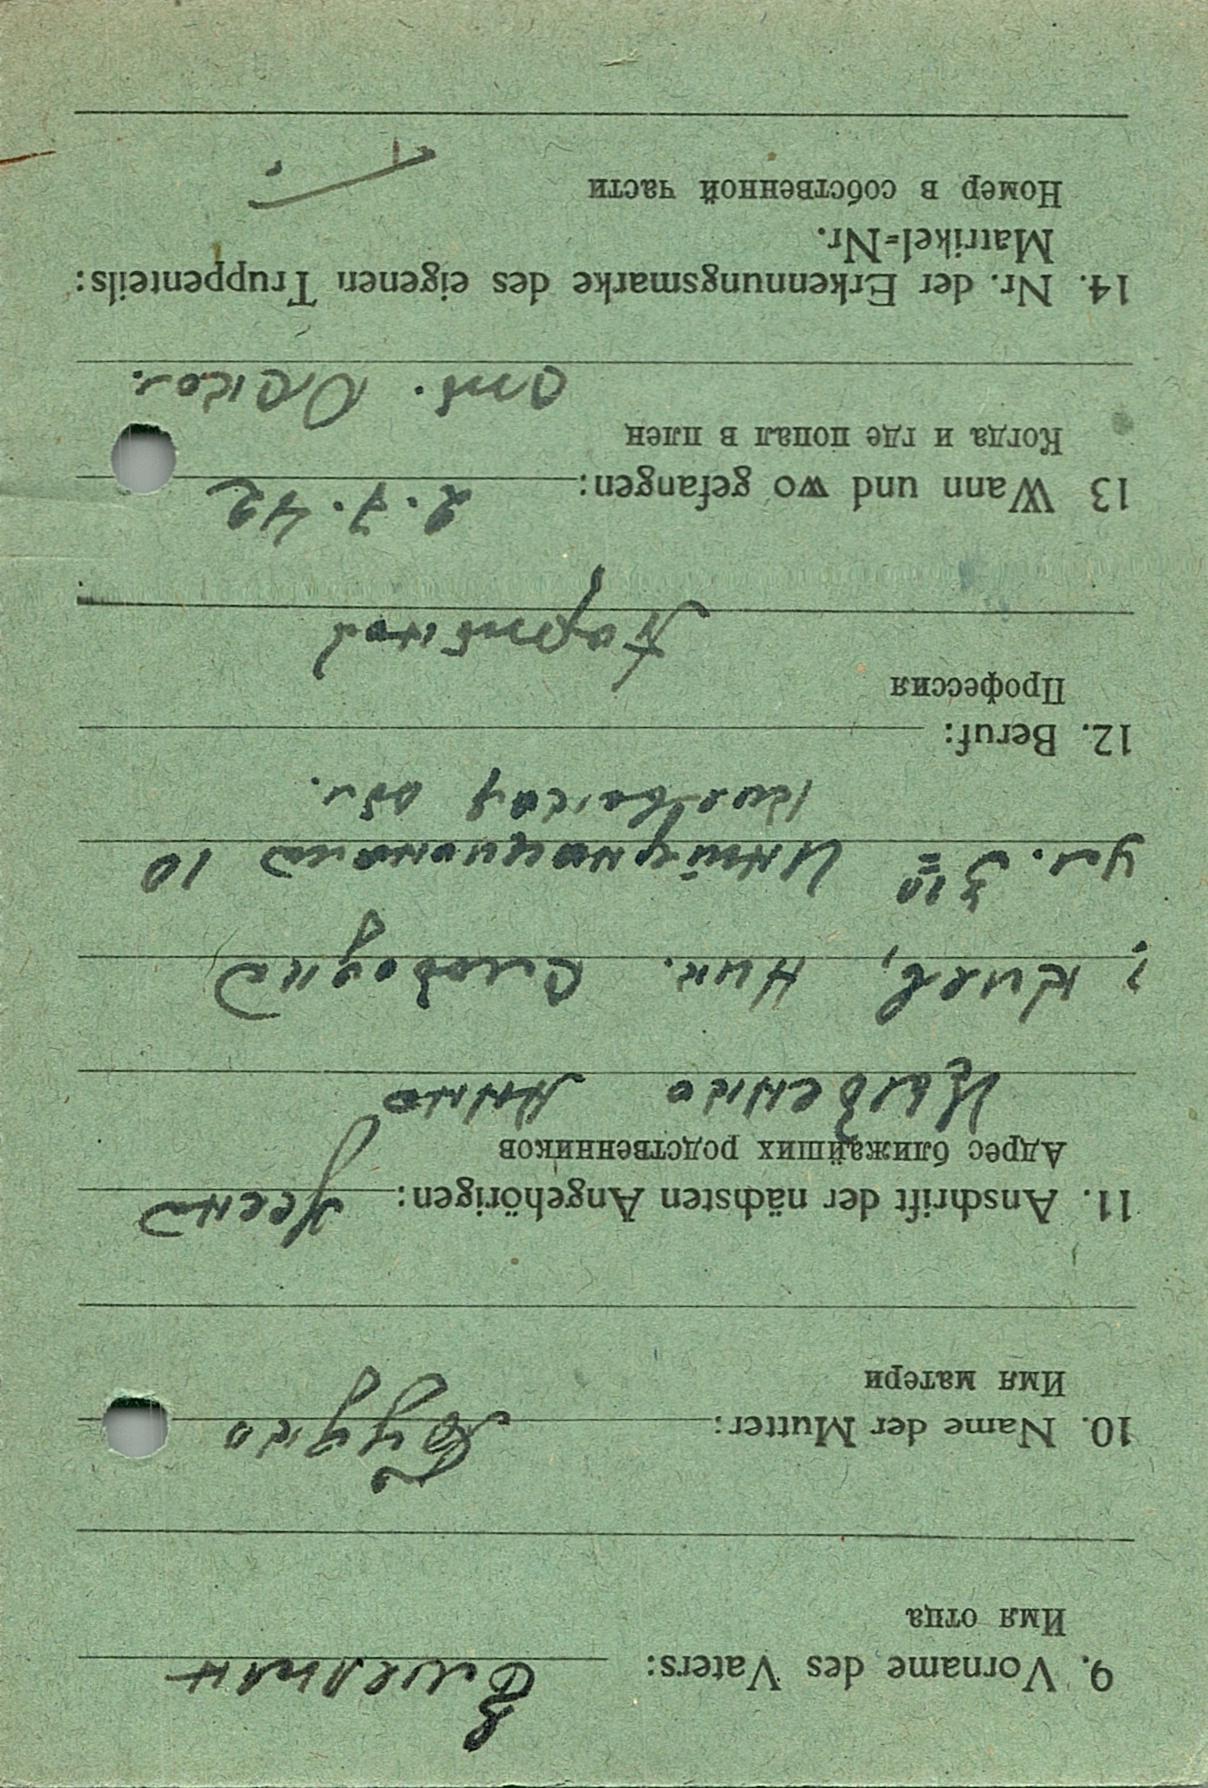 9. Vorname des Vaters: Емельян
Имя отца
10. Name der Mutter:
Имя матери
11. Anschrift der nächsten Angehörigen: Жена
Адрес ближайших родственников
Анна
г. Киев, Ник. Слободка
ул. 3го Интернационала 10
Киевской обл.
12. Beruf:
Профессия
13 Wann und wo gefangen: 2.7.42
Когда и где попал в плен
Оскол.
14. Nr. der Erkennungsmarke des eigenen Truppenteils:
Matrikel=Nr.
Номер в собственной части